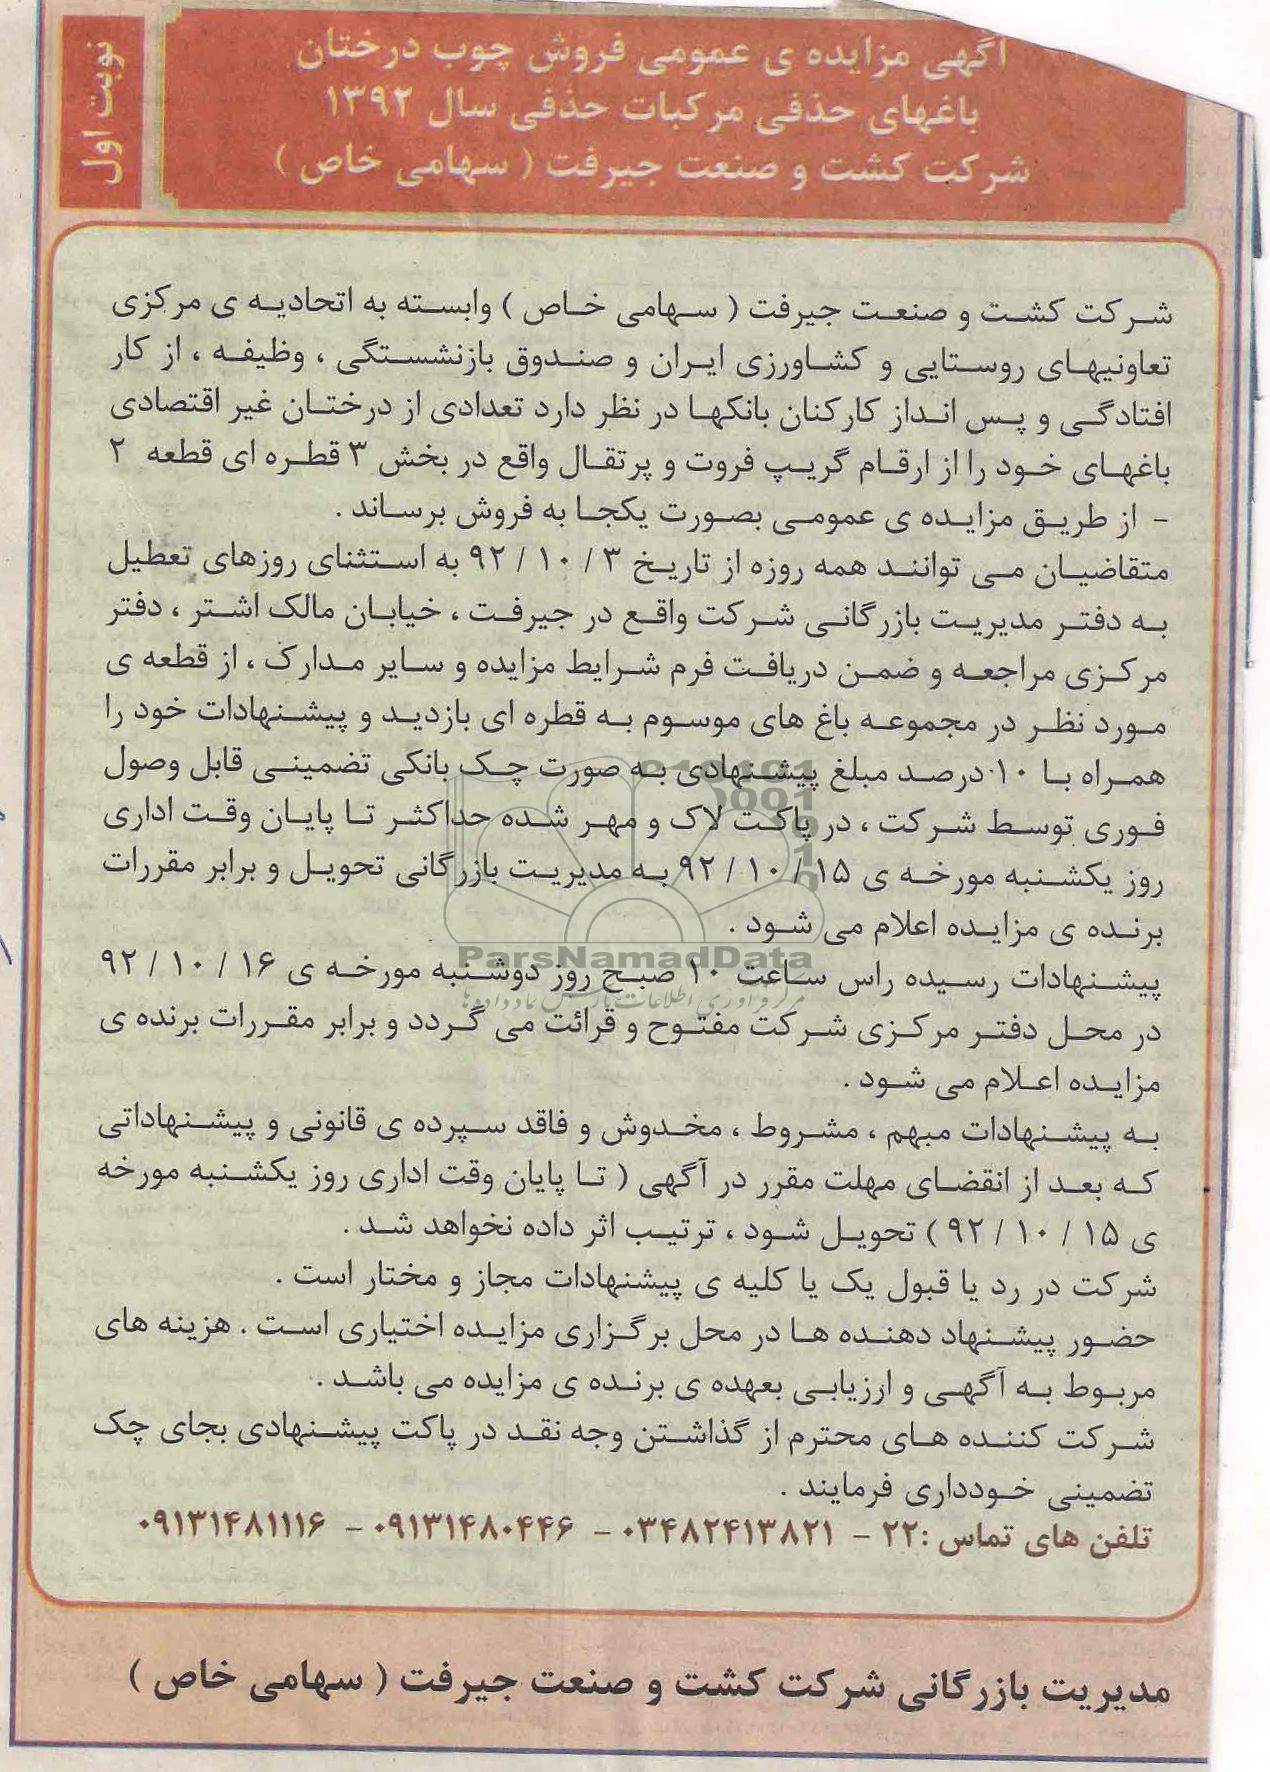 نوبت اول
آگهی مزایده ی عمومی فروش چوب درختان
باغهای حذفی مرکبات حذفی سال ۱۳۹۲
شرکت کشت و صنعت جیرفت ( سهامی خاص )
شرکت کشت و صنعت جیرفت ( سهامی خاص ) وابسته به اتحادیه ی مرکزی
تعاونیهای روستایی و کشاورزی ایران و صندوق بازنشستگی ، وظیفه ، از کار
افتادگی و پس انداز کارکنان بانکها در نظر دارد تعدادی از درختان غیر اقتصادی
باغهای خود را از ارقام گریپ فروت و پرتقال واقع در بخش ۳ قطره ای قطعه ۲
- از طریق مزایده ی عمومی بصورت یکجا به فروش برساند .
متقاضیان می توانند همه روزه از تاریخ ۳ / ۱۰ / ۹۲ به استثنای روزهای تعطیل
به دفتر مدیریت بازرگانی شرکت واقع در جیرفت ، خیابان مالک اشتر ، دفتر
مرکزی مراجعه و ضمن دریافت فرم شرایط مزایده و سایر مدارک ، از قطعه ی
مورد نظر در مجموعه باغ های موسوم به قطره ای بازدید و پیشنهادات خود را
همراه با ۱۰ درصد مبلغ پیشنهادی به صورت چک بانکی تضمینی قابل وصول
فوری توسط شرکت ، در پاکت لاک و مهر شده حداکثر تا پایان وقت اداری
روز یکشنبه مورخه ی ۱۵ / ۱۰ / ۹۲ به مدیریت بازرگانی تحویل و برابر مقررات
برنده ی مزایده اعلام می شود .
پیشنهادات رسیده راس ساعت ۱۰ صبح روز دوشنبه مورخه ی ۱۶ / ۱۰ / ۹۲
در محل دفتر مرکزی شرکت مفتوح و قرائت می گردد و برابر مقررات برنده ی
مزایده اعلام می شود .
به پیشنهادات مبهم ، مشروط ، مخدوش و فاقد سپرده ی قانونی و پیشنهاداتی
که بعد از انقضای مهلت مقرر در آگهی ( تا پایان وقت اداری روز یکشنبه مورخه
ی ۱۵ / ۱۰ / ۹۲ ) تحویل شود ، ترتیب اثر داده نخواهد شد .
شرکت در رد یا قبول یک یا کلیه ی پیشنهادات مجاز و مختار است .
حضور پیشنهاد دهنده ها در محل برگزاری مزایده اختیاری است . هزینه های
مربوط به آگهی و ارزیابی بعهده ی برنده ی مزایده می باشد .
شرکت کننده های محترم از گذاشتن وجه نقد در پاکت پیشنهادی بجای چک
تضمینی خودداری فرمایند .
تلفن های تماس :۲۲ - ۰۳۴۸۲۴۱۳۸۲۱ - ۰۹۱۳۱۴۸۰۴۴۶ - ۰۹۱۳۱۴۸۱۱۱۶
مدیریت بازرگانی شرکت کشت و صنعت جیرفت ( سهامی خاص )
ParsNamadData